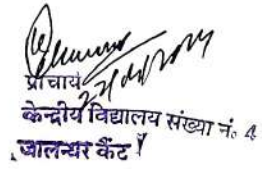 प्राचार्य
केन्द्रीय विद्यालय संख्या नं. 4
जालन्धर कैंट